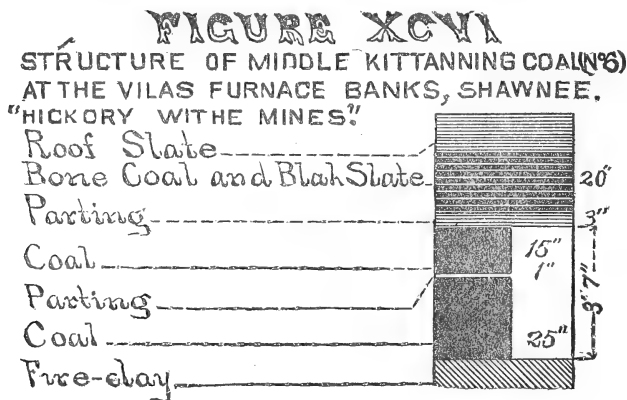 FIGURE XCVI
STRUCTURE OF MIDDLE KITTANNING COAL (No6)
AT THE VILAS FURNACE BANKS, SHAWNEE.
"HICKORY WITHE MINES."
Roof Slate
Bone Coal and Blah Slate 20"
Parting 3"
Coal 15"
1"
Parting
3' 7"
Coal 25"
Fire-clay